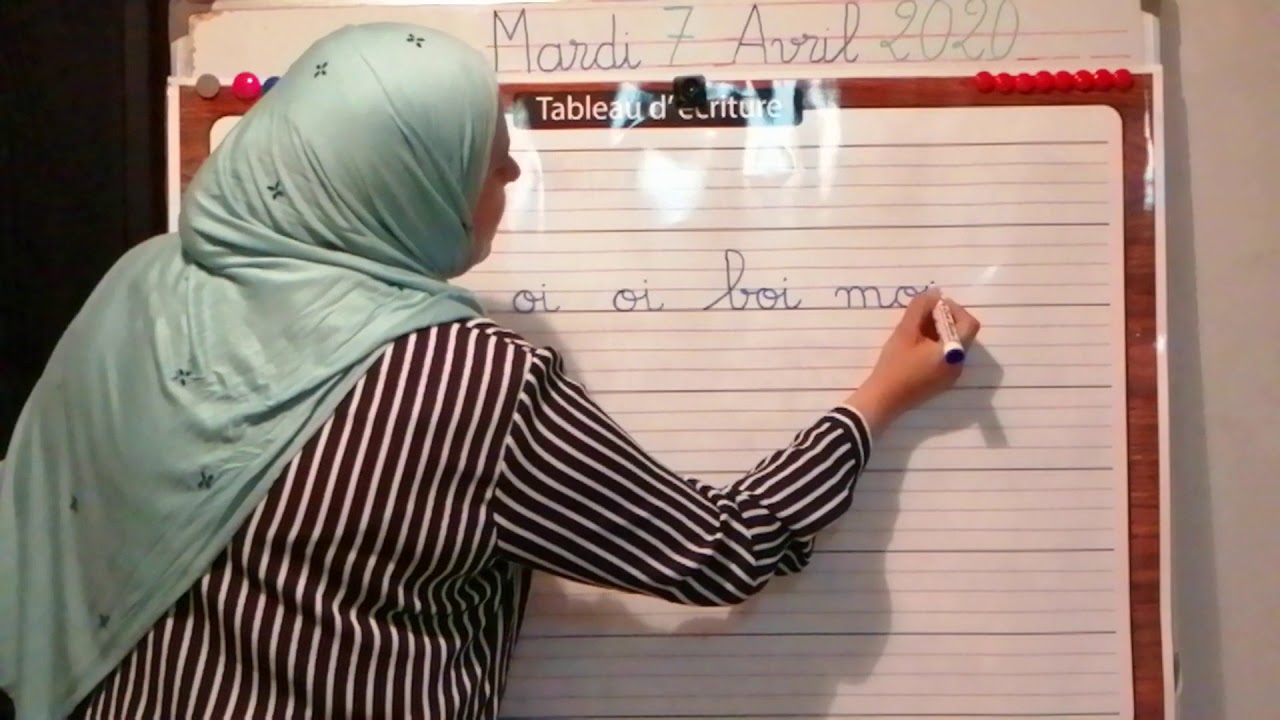 Mardi 7 Avril 2020
Tableau d'écriture
oi oi boi moi